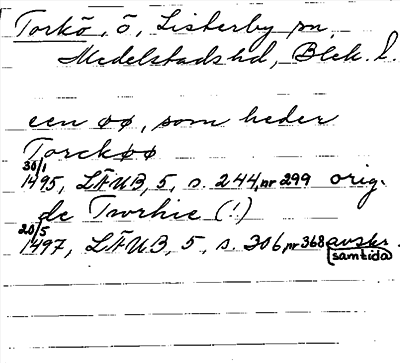 Torkö, ö, Listerby sn
Medelstads hd, Blek. l.
een øø, som heder
Torckøø
30/1 1495, LFUB, 5, s. 244, nr 299 orig.
de Tworhie (!)
20/5 1497, LFUB, 5, s. 306, nr 368 avskr.
samtida